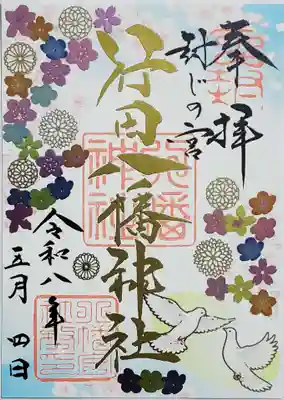 奉拝
封じの宮
行田八幡神社
八幡神社
令和八年
五月 四日